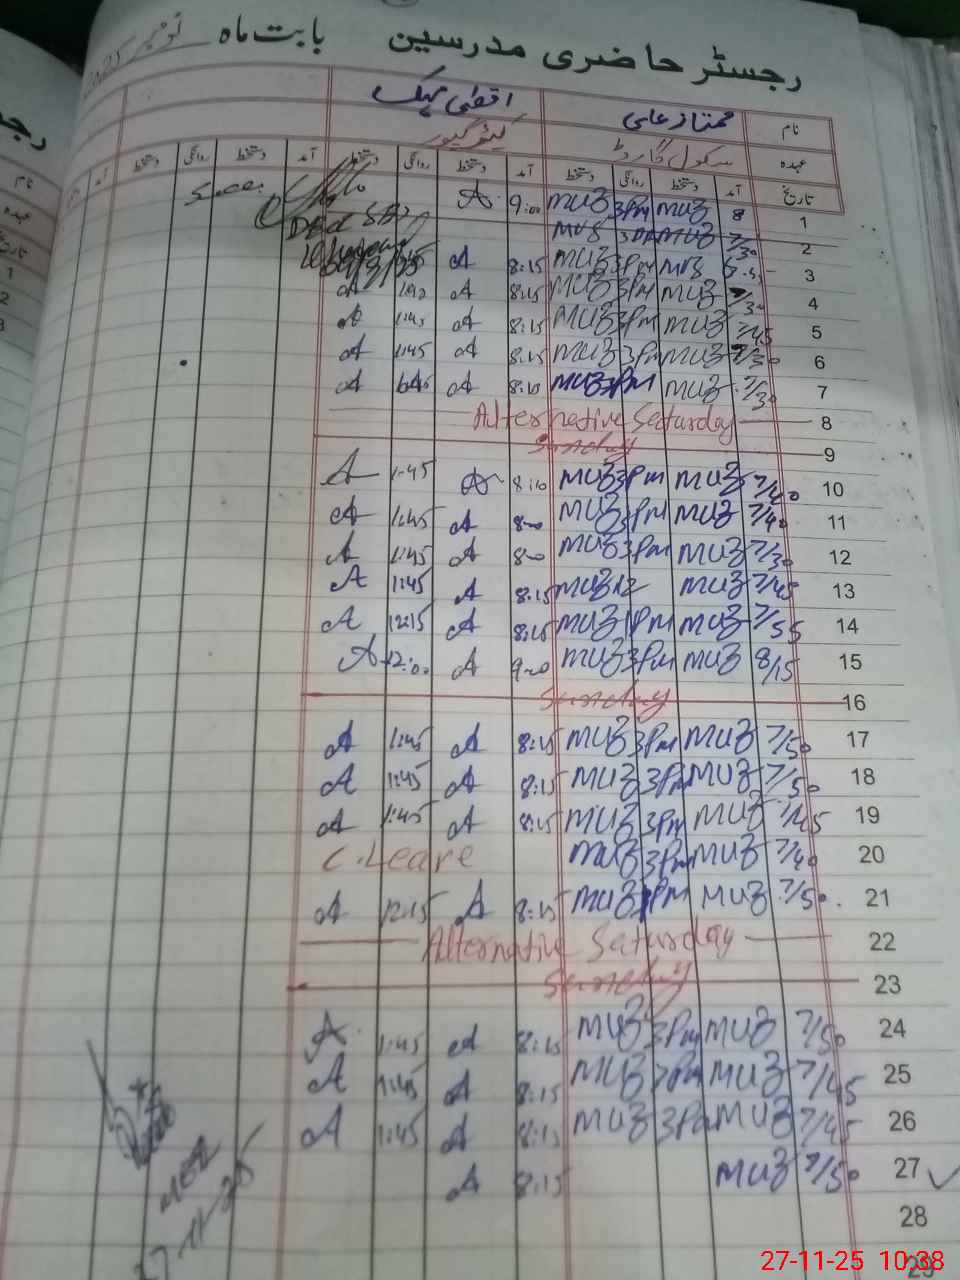 رجسٹر حاضری مدرسین بابت ماہ نومبر 2025
نام ممتاز علی اقصٰی بیگ
عہدہ سکول گارڈ کیئر گیور
تاریخ آمد دستخط روانگی دستخط آمد دستخط روانگی دستخط آمد دستخط روانگی دستخط
1 8 MUZ 3PM MUZ 9:00 A
2 7/30 MUZ 3PM MUZ
3 MUZ 3PM MUZ 8:15 A
4 7/30 MUZ 3PM MUZ 8:15 A A
5 7/45 MUZ 3PM MUZ 8:15 A 1:45 A
6 7/30 MUZ 3PM MUZ 8:15 A 1:45 A
7 7/30 MUZ 3PM MUZ 8:10 A 1:45 A
8 Alternative Saturday
9 Sunday
10 7/40 MUZ 3PM MUZ 8:10 A 1:45 A
11 7/40 MUZ 3PM MUZ 8:00 A 1:45 A
12 7/30 MUZ 3PM MUZ 8:00 A 1:45 A
13 7/45 MUZ 12 MUZ 8:15 A 1:45 A
14 7/55 MUZ 1PM MUZ 8:15 A 12:15 A
15 8/15 MUZ 3PM MUZ 9:00 A 12:00 A
16 Sunday
17 7/50 MUZ 3PM MUZ 8:15 A 1:45 A
18 7/50 MUZ 3PM MUZ 8:15 A 1:45 A
19 7/45 MUZ 3PM MUZ 8:15 A 1:45 A
20 7/40 MUZ 3PM MUZ C.Leave
21 7/50 MUZ PM MUZ 8:15 A 12:15 A
22 Alternative Saturday
23 Sunday
24 7/50 MUZ 3PM MUZ 8:15 A 1:45 A
25 7/45 MUZ 3PM MUZ 8:15 A 1:45 A
26 7/45 MUZ 3PM MUZ 8:15 A 1:45 A
27 7/50 MUZ 8:15 A
28
27-11-25 10:38